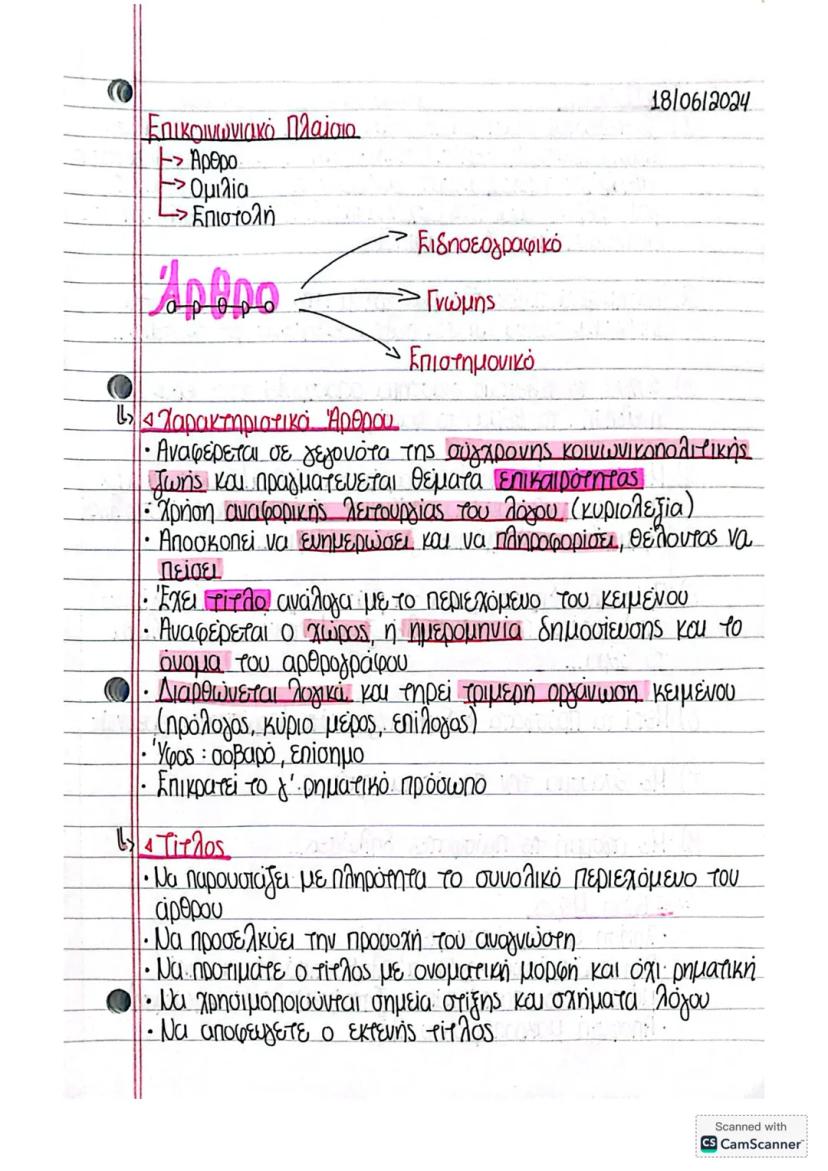 18/06/2024
Επικοινωνιακό Πλαίσιο
Άρθρο
Ομιλία
Επιστολή
Ειδησεογραφικό
Άρθρο
Γνώμης
Επιστημονικό
Χαρακτηριστικά Άρθρου
· Αναφέρεται σε γεγονότα της σύγχρονης κοινωνικοπολιτικής
ζωής και πραγματεύεται θέματα επικαιρότητας
· Χρήση αναφορικής λειτουργίας του λόγου (κυριολεξία)
· Αποσκοπεί να ενημερώσει και να πληροφορίσει, θέλοντας να
πείσει
· Έχει τίτλο ανάλογα με το περιεχόμενο του κειμένου
· Αναφέρεται ο χώρος, η ημερομηνία δημοσίευσης και το
όνομα του αρθρογράφου
· Διαρθώνεται λογικά και τηρεί τριμερή οργάνωση κειμένου
(πρόλογος, κύριο μέρος, επίλογος)
· Ύφος: σοβαρό, επίσημο
· Επικρατεί το γ' ρηματικό πρόσωπο
Τίτλος
· Να παρουσιάζει με πληρότητα το συνολικό περιεχόμενο του
άρθρου
· Να προσελκύει την προσοχή του αναγνώστη
· Να προτιμάτε ο τίτλος με ονοματική μορφή και όχι ρηματική
· Να χρησιμοποιούνται σημεία στίξης και σχήματα λόγου
· Να αποφεύγετε ο εκτενής τίτλος
Scanned with
CS CamScanner